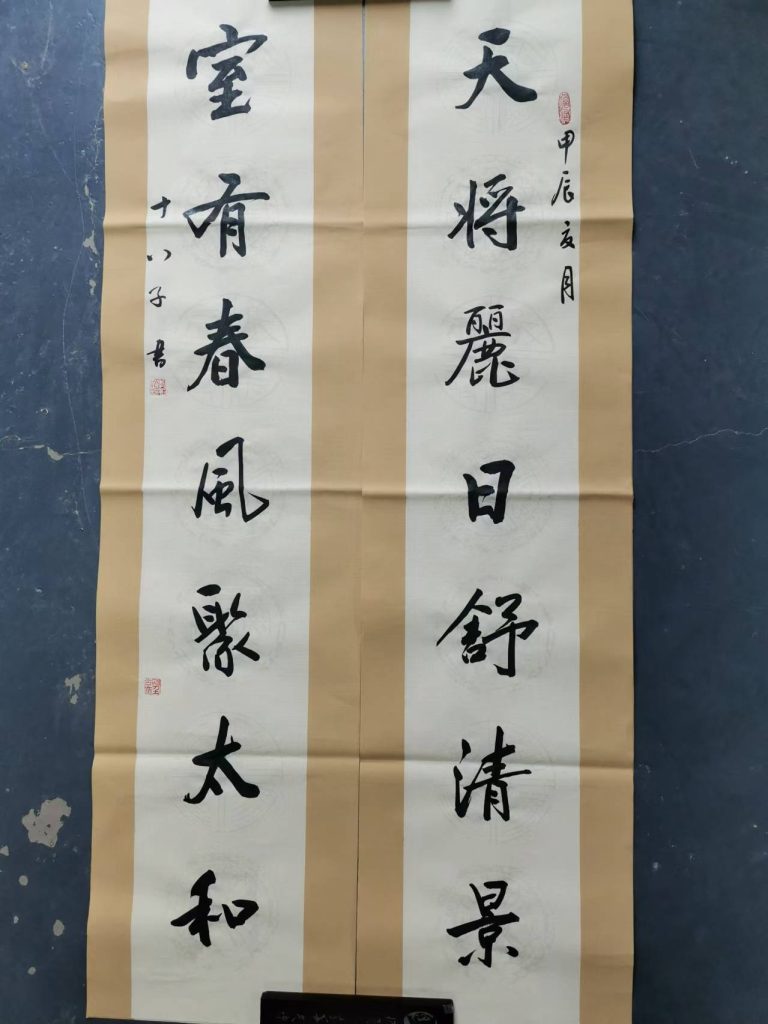 天将麗日舒清景
甲辰亥月
室有春風聚太和
十八子書